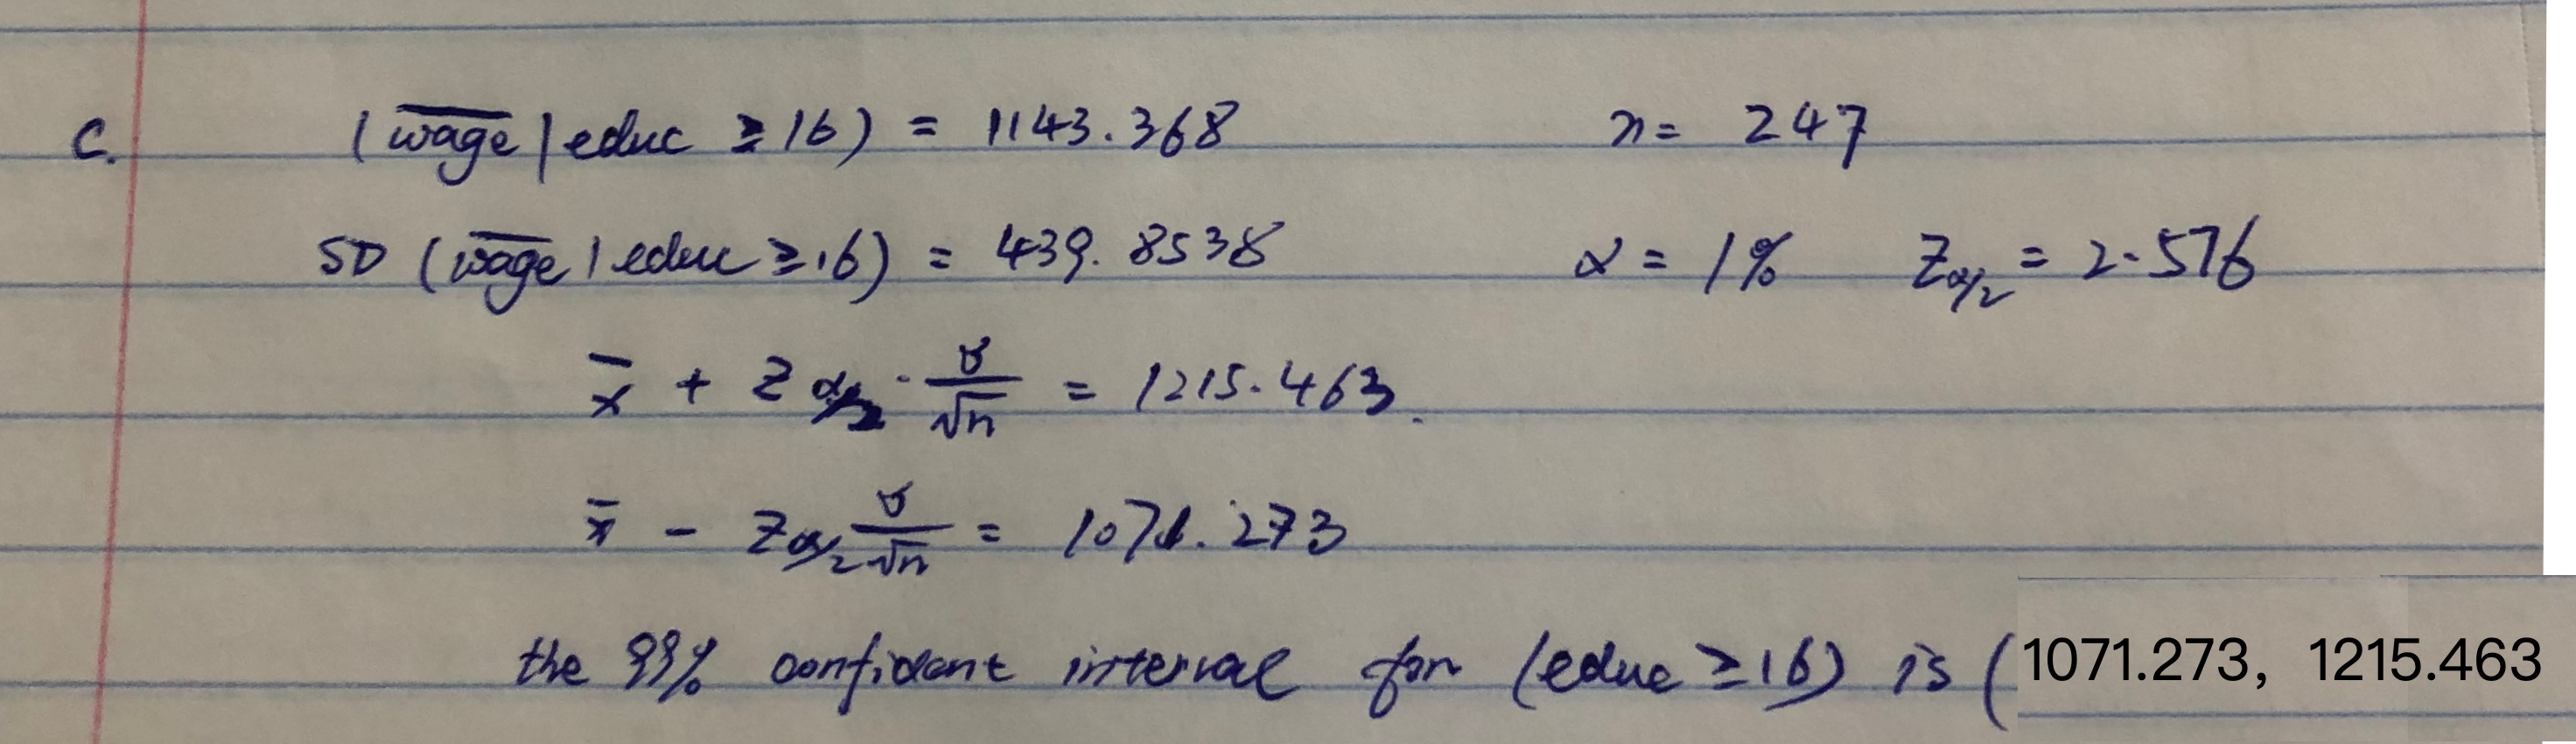 C. ( w̅a̅g̅e̅ | educ ≥ 16 ) = 1143.368 n = 247
SD ( w̅a̅g̅e̅ | educ ≥ 16 ) = 439.8538 α = 1% Z_{α/2} = 2.576
x̅ + Z_{α/2} · σ/√n = 1215.463.
x̅ - Z_{α/2} σ/√n = 1071.273
the 99% confidant interval for (educ ≥ 16) is ( 1071.273, 1215.463